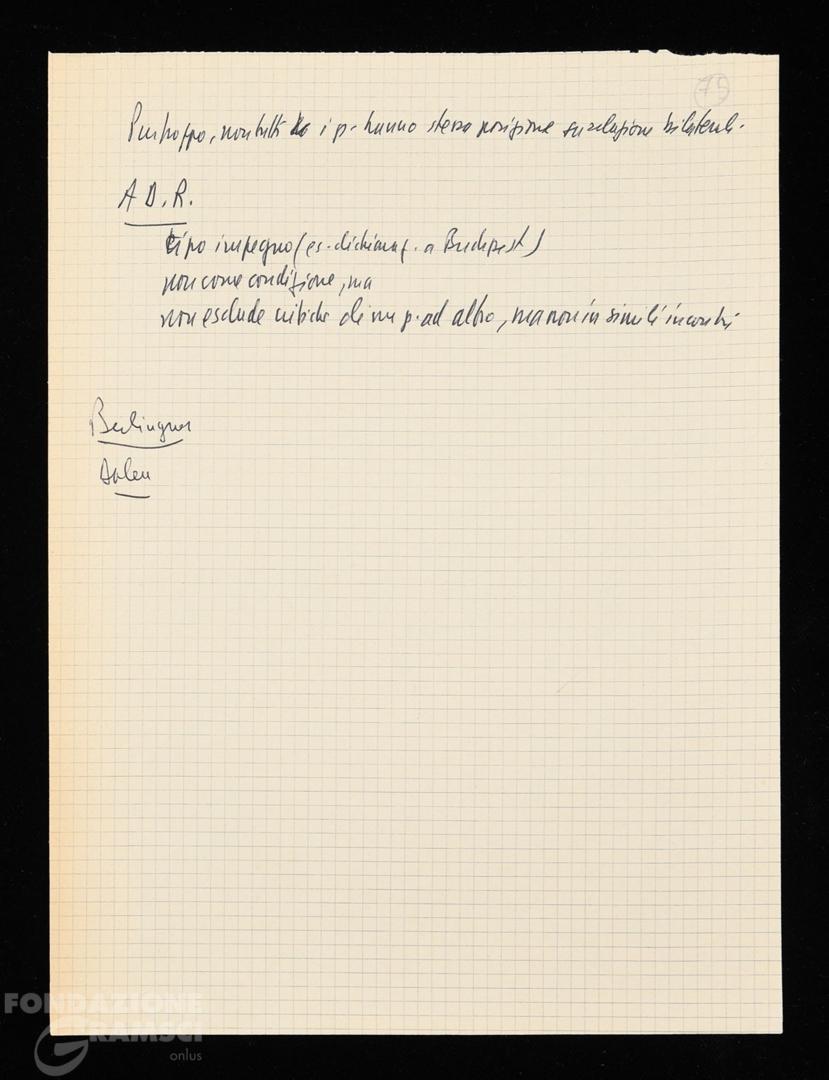 75
Purtroppo, non tutti i p. hanno stessa posizione su relazioni bilaterali.
A D. R.
tipo impegno (es. dichiaraz. a Budapest)
non come condizione, ma
non esclude critiche di un p. ad altro, ma non in simili incontri
Berlinguer
FONDAZIONE
GRAMSCI
onlus